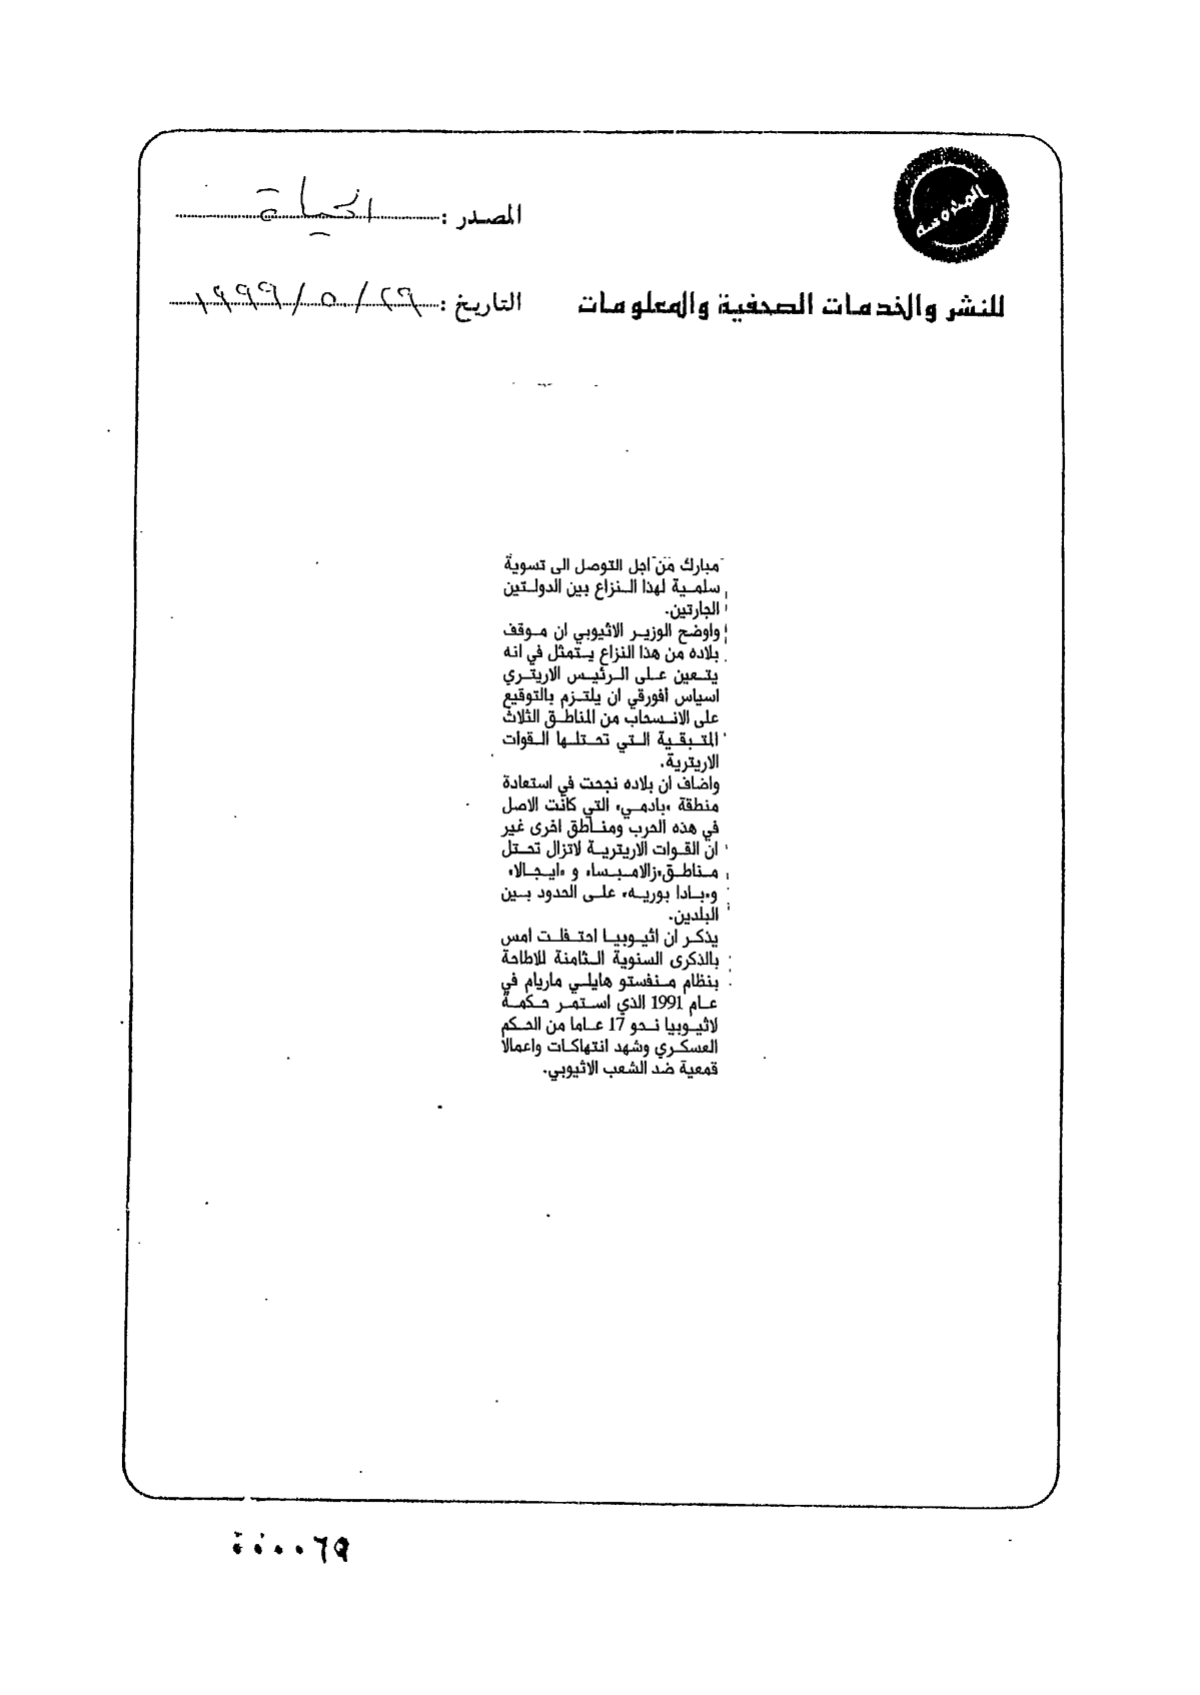 المصدر : الحياة
للنشر والخدمات الصحفية والمعلومات
التاريخ : ٢٩ / ٥ / ١٩٩٩
مبارك من اجل التوصل الى تسوية
سلمية لهذا النزاع بين الدولتين
الجارتين.
واوضح الوزير الاثيوبي ان موقف
بلاده من هذا النزاع يتمثل في انه
يتعين على الرئيس الاريتري
اسياس أفورقي ان يلتزم بالتوقيع
على الانسحاب من المناطق الثلاث
المتبقية التي تحتلها القوات
الاريترية.
واضاف ان بلاده نجحت في استعادة
منطقة «بادمي» التي كانت الاصل
في هذه الحرب ومناطق اخرى غير
ان القوات الاريترية لاتزال تحتل
مناطق«زالامبسا» و «ايجالا»
و«بادا بوريه» على الحدود بين
البلدين.
يذكر ان اثيوبيا احتفلت امس
بالذكرى السنوية الثامنة للاطاحة
بنظام منفستو هايلي ماريام في
عام 1991 الذي استمر حكمة
لاثيوبيا نحو 17 عاما من الحكم
العسكري وشهد انتهاكات واعمالا
قمعية ضد الشعب الاثيوبي.